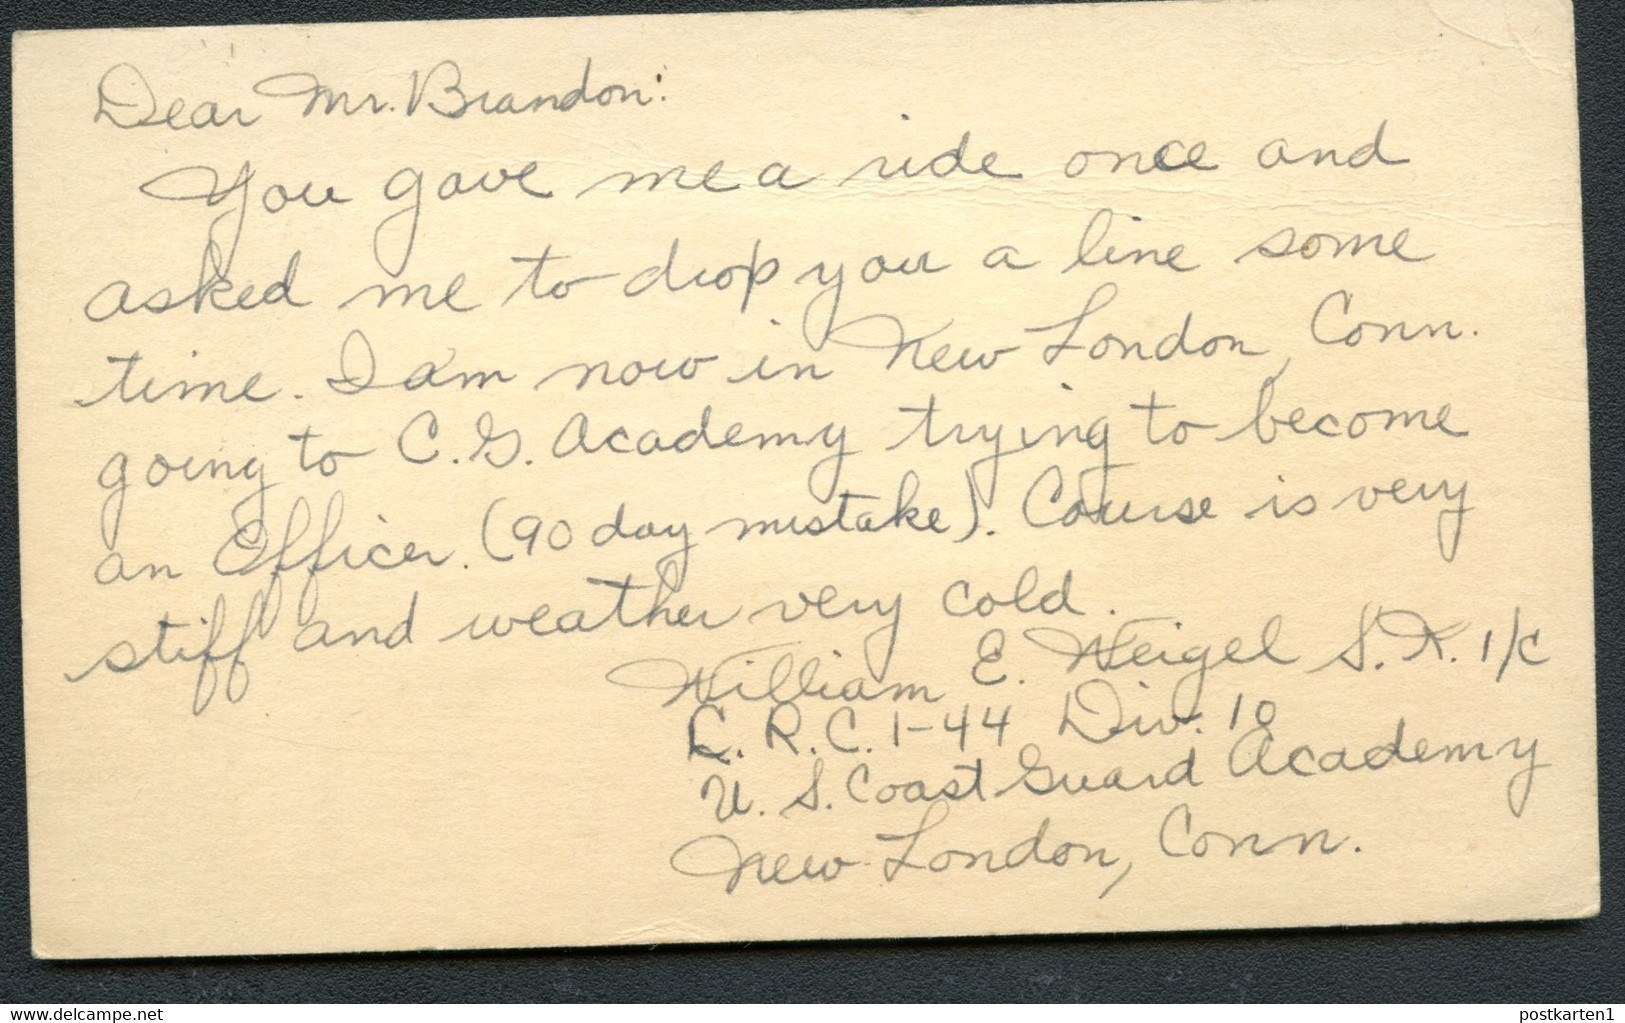 Dear Mr. Brandon:
You gave me a ride once and
asked me to drop you a line some
time. I am now in New London, Conn.
going to C.G. Academy trying to become
an Officer. (90 day mistake). Course is very
stiff and weather very cold.
William E. Weigel S.K. 1/c
R.C. 1-44 Div. 10
U. S. Coast Guard Academy
New London, Conn.
www.delcampe.net
postkarten1